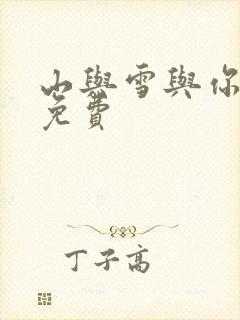 山與雪與你
免費
丁子高